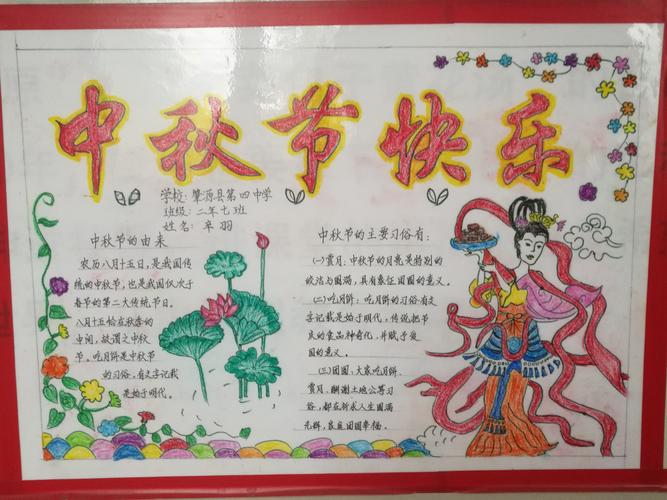 中秋节快乐
学校: 肇源县第四中学
班级: 二年七班
姓名: 卓羽
中秋节的由来
农历八月十五日,是我国传
统的中秋节,也是我国仅次于
春节的第二大传统节日。
八月十五恰在秋季的
中间,故谓之中秋
节。吃月饼是中秋节
的习俗,有文字记载
是始于明代。
中秋节的主要习俗有:
(一)赏月:中秋节的月亮是特别的
皎洁与圆满,具有象征团圆的意义。
(二)吃月饼:吃月饼的习俗有文
字记载是始于明代,传说把节
民的食品神奇化,并赋予爱
国的意义。
(三)团圆,大家吃月饼、
赏月、酬谢土地公等习
俗,都在祈求人生圆满
光辉,家庭团圆幸福。